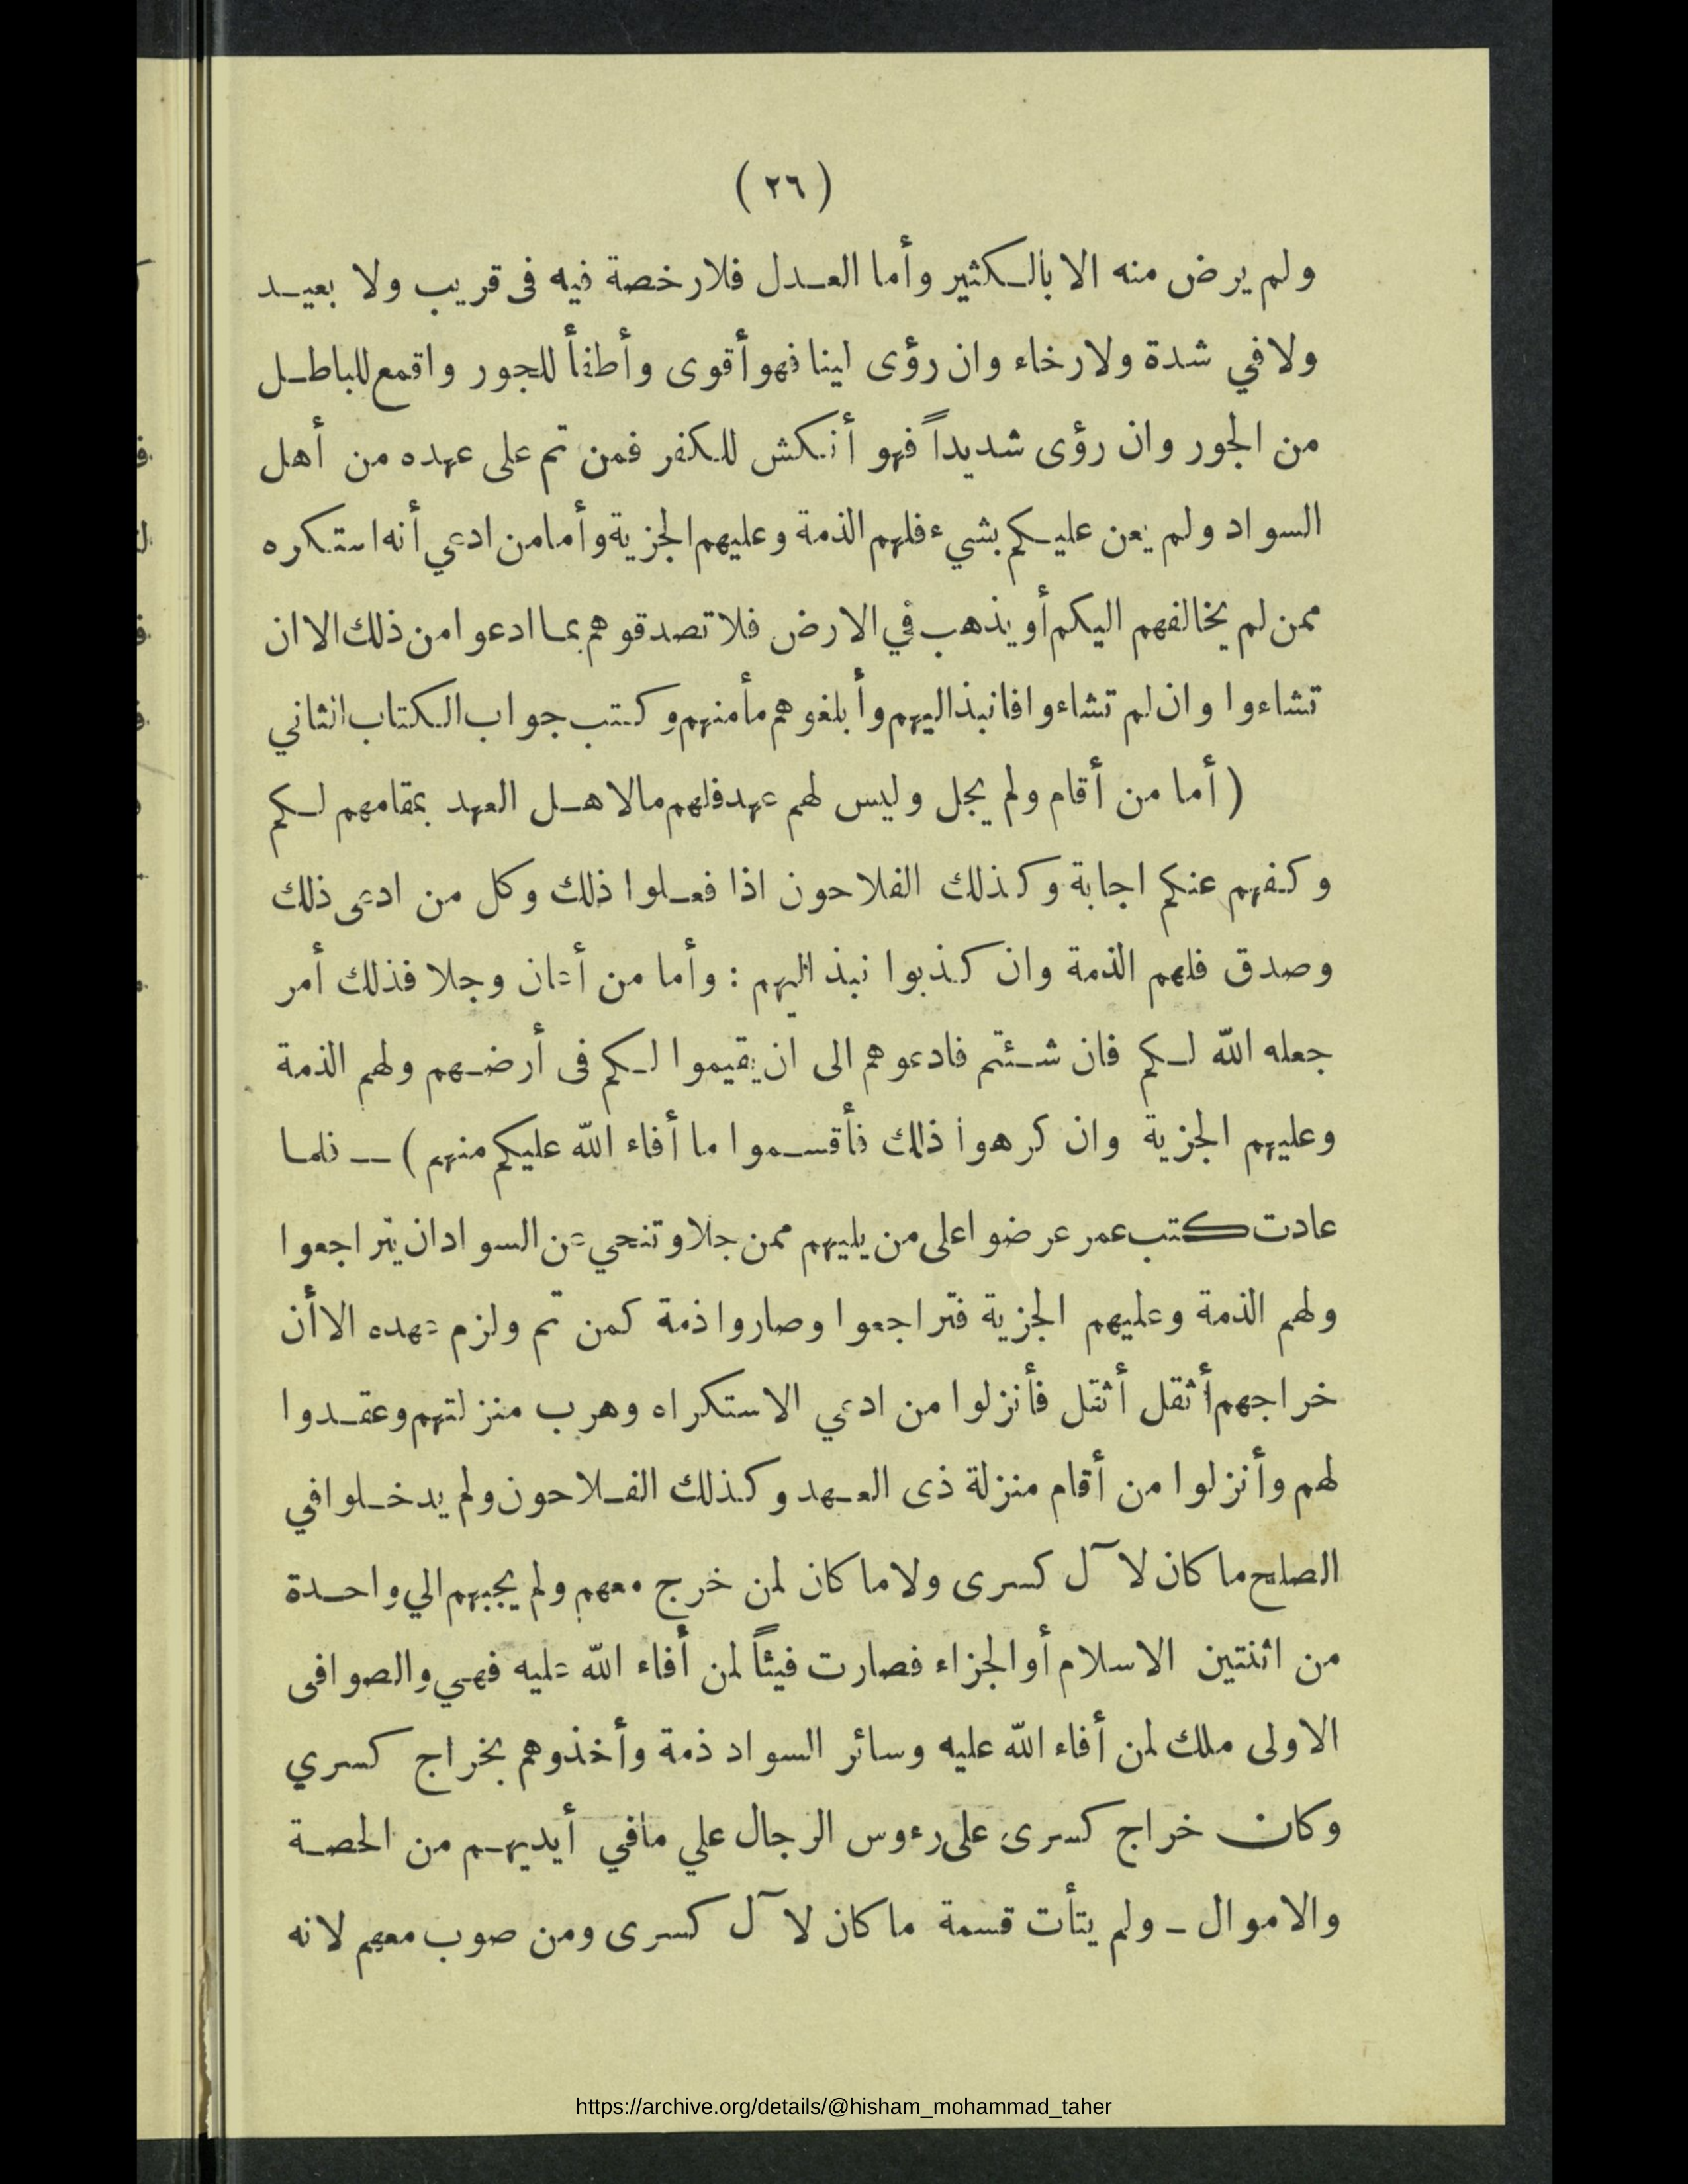 ( ٢٦ )
ولم يرض منه الا بالكثير وأما العدل فلا رخصة فيه فى قريب ولا بعيد
ولا في شدة ولا رخاء وان رؤى لينا فهو أقوى وأطفأ للجور واقمع للباطل
من الجور وان رؤى شديداً فهو أنكش للكفر فمن تم على عهده من أهل
السواد ولم يعن عليكم بشيء فلهم الذمة وعليهم الجزية وأما من ادعي أنه استكره
ممن لم يخالفهم اليكم أو يذهب في الارض فلا تصدقوهم بما ادعوا من ذلك الا ان
تشاءوا وان لم تشاءوا فانبذ اليهم وأبلغوهم مأمنهم وكتب جواب الكتاب الثاني
( أما من أقام ولم يجل وليس لهم عهد فلهم ما لاهل العهد بمقامهم لكم
وكفهم عنكم اجابة وكذلك الفلاحون اذا فعلوا ذلك وكل من ادعى ذلك
وصدق فلهم الذمة وان كذبوا نبذ اليهم : وأما من أعان وجلا فذلك أمر
جعله الله لكم فان شئتم فادعوهم الى ان يقيموا لكم فى أرضهم ولهم الذمة
وعليهم الجزية وان كرهوا ذلك فأقسموا ما أفاء الله عليكم منهم ) — فلما
عادت كتب عمر عرضوا على من يليهم ممن جلا وتنحي عن السواد ان يتراجعوا
ولهم الذمة وعليهم الجزية فتراجعوا وصاروا ذمة كمن تم ولزم عهده الا أن
خراجهم أثقل أثقل فأنزلوا من ادعي الاستكراه وهرب منزلتهم وعقدوا
لهم وأنزلوا من أقام منزلة ذى العهد وكذلك الفلاحون ولم يدخلوا في
الصلح ما كان لآل كسرى ولا ما كان لمن خرج معهم ولم يجبهم الي واحدة
من اثنتين الاسلام أو الجزاء فصارت فيئاً لمن أفاء الله عليه فهي والصوافى
الاولى ملك لمن أفاء الله عليه وسائر السواد ذمة وأخذوهم بخراج كسري
وكان خراج كسرى على رءوس الرجال علي ما في أيديهم من الحصة
والاموال – ولم يتأت قسمة ما كان لآل كسرى ومن صوب معهم لانه
https://archive.org/details/@hisham_mohammad_taher